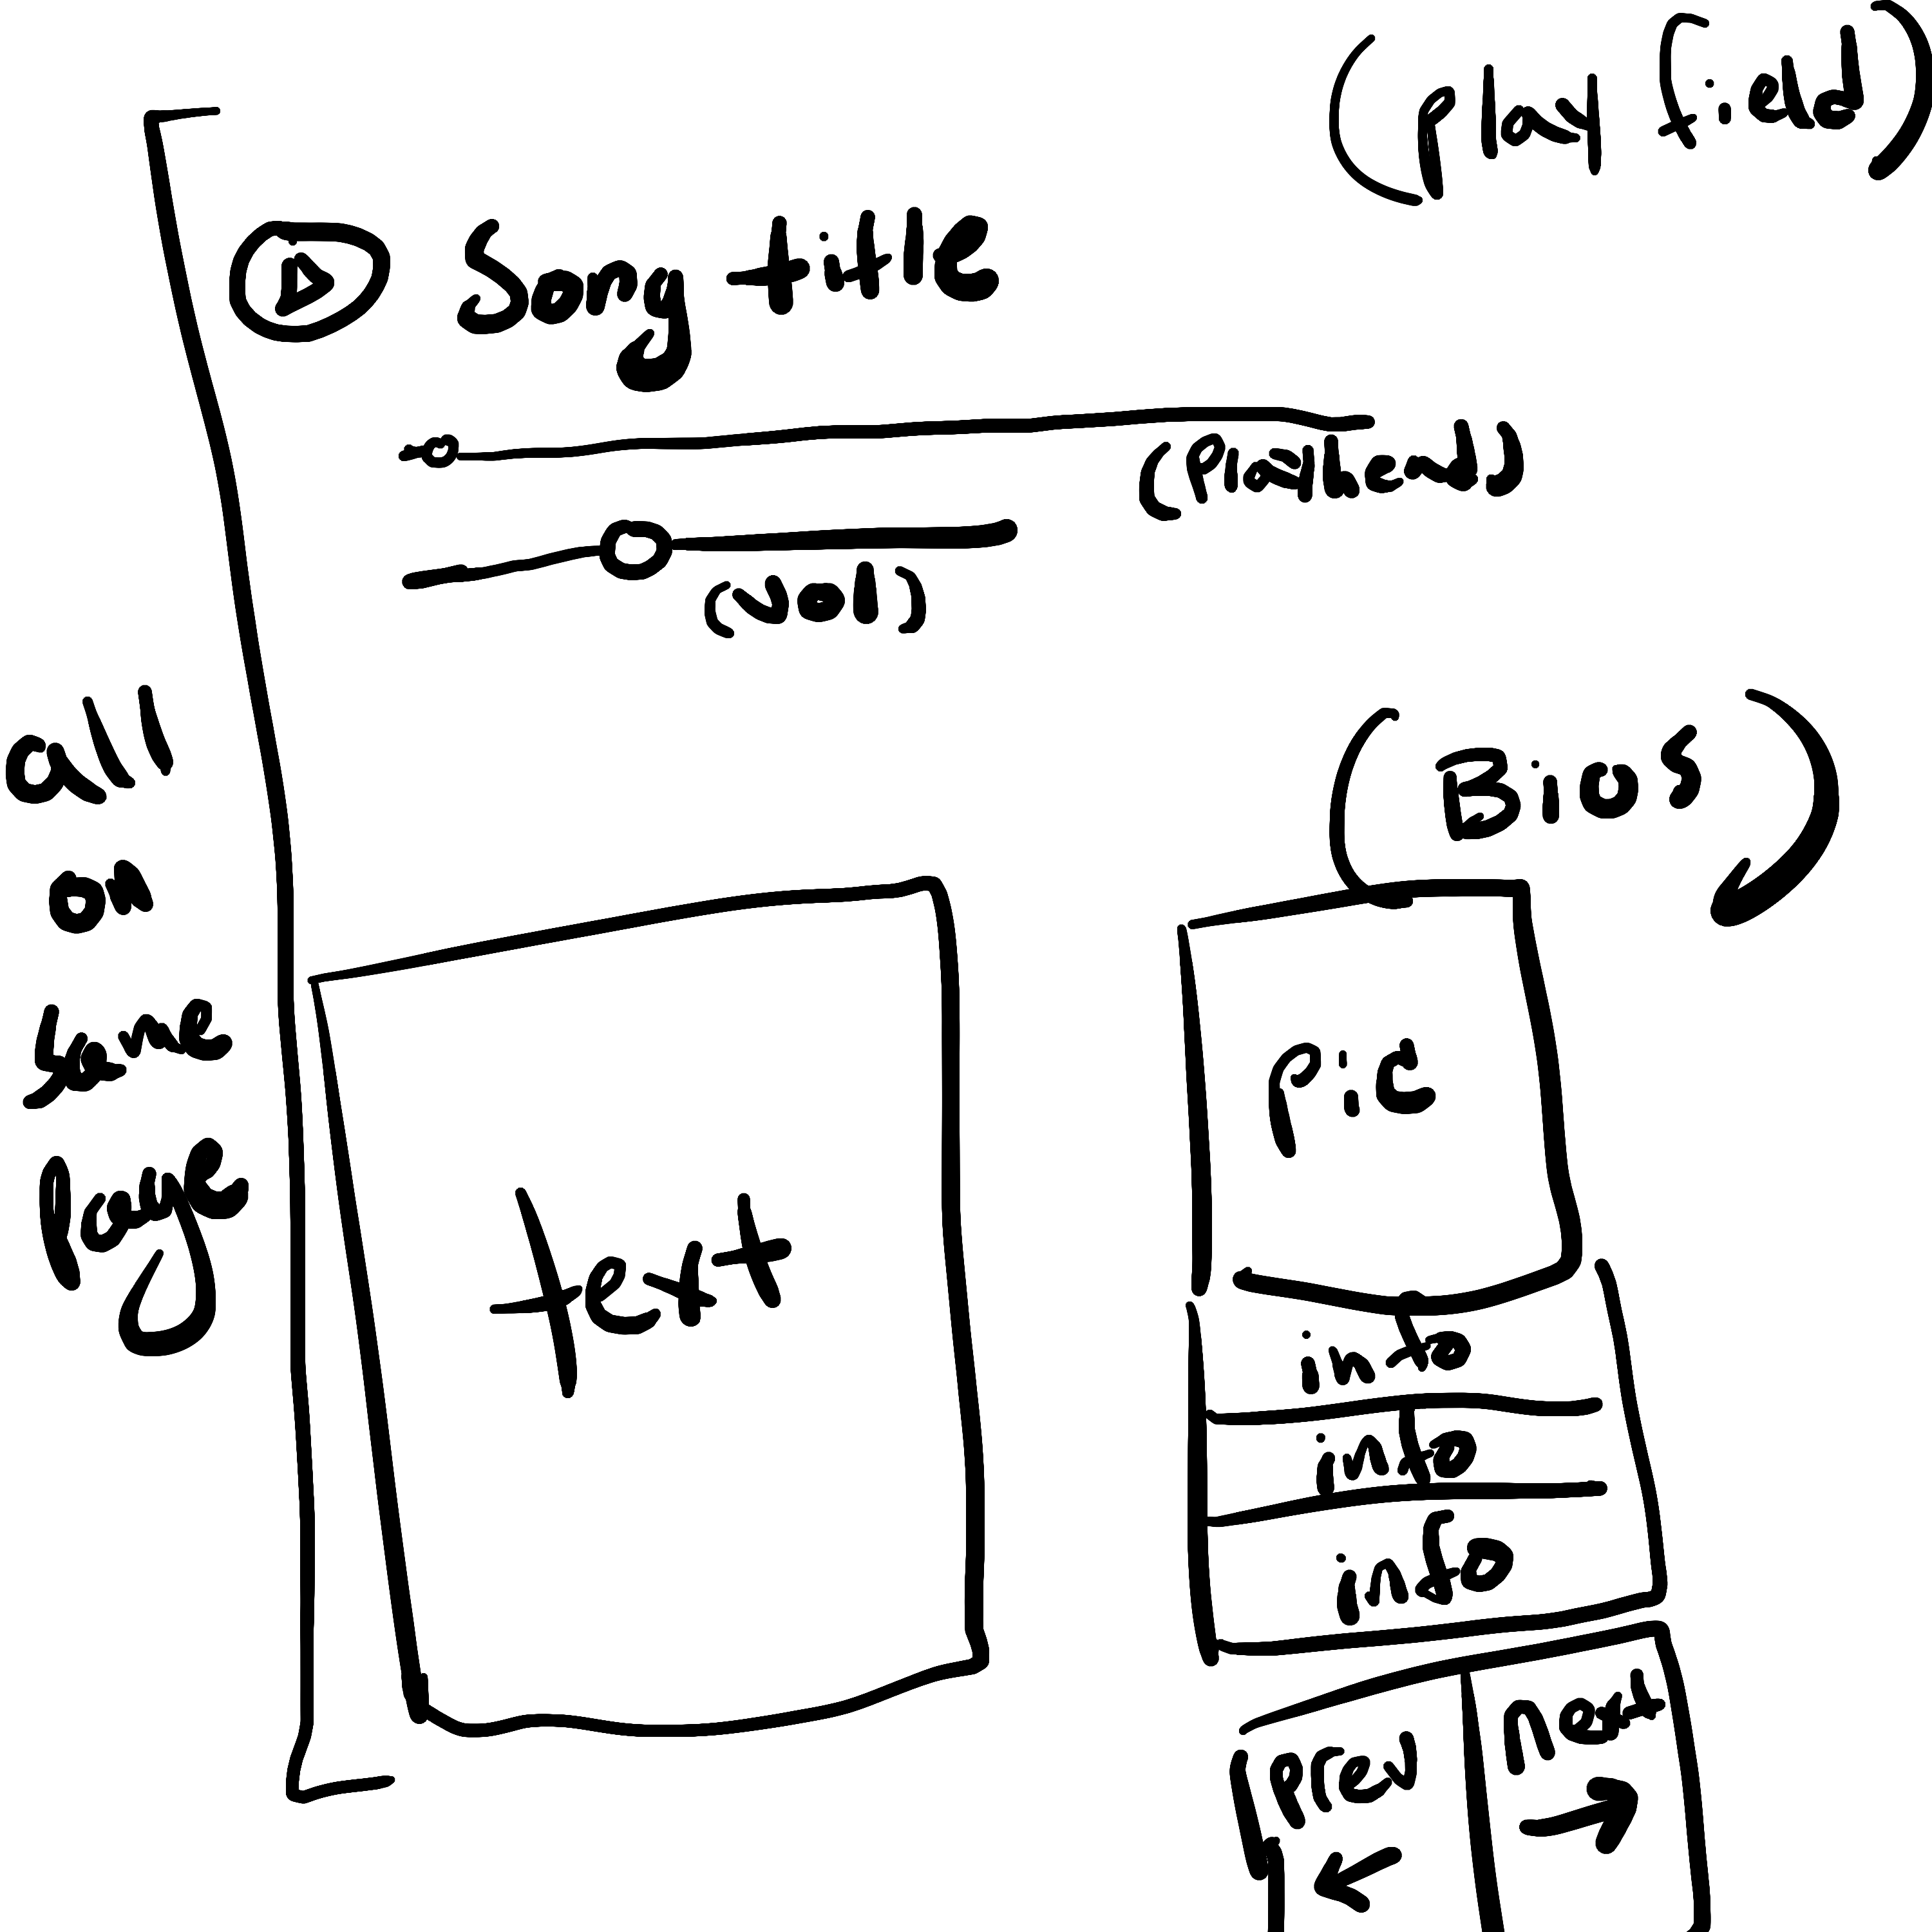 (play field)
Song title
(Playhead)
(Vol)
all
on
same
page
(Bios)
text
pic
info
info
info
prev
next